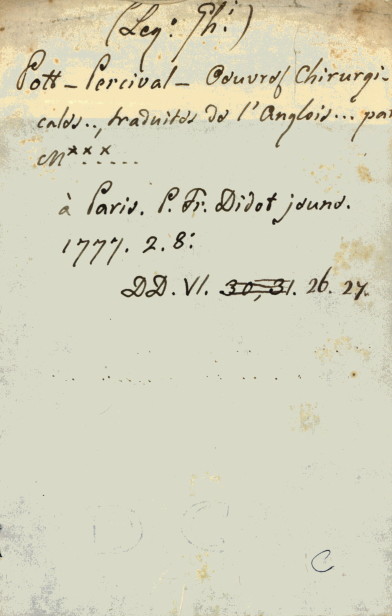 (Leg: Gh:)
Pott - Percival - Oeuvres Chirurgi-
cales.., traduites de l'Anglois... par
M***.....
à Paris. P. Fr. Didot jeune.
1777. 2. 8:
DD. VI. 30, 31. 26. 27.
C